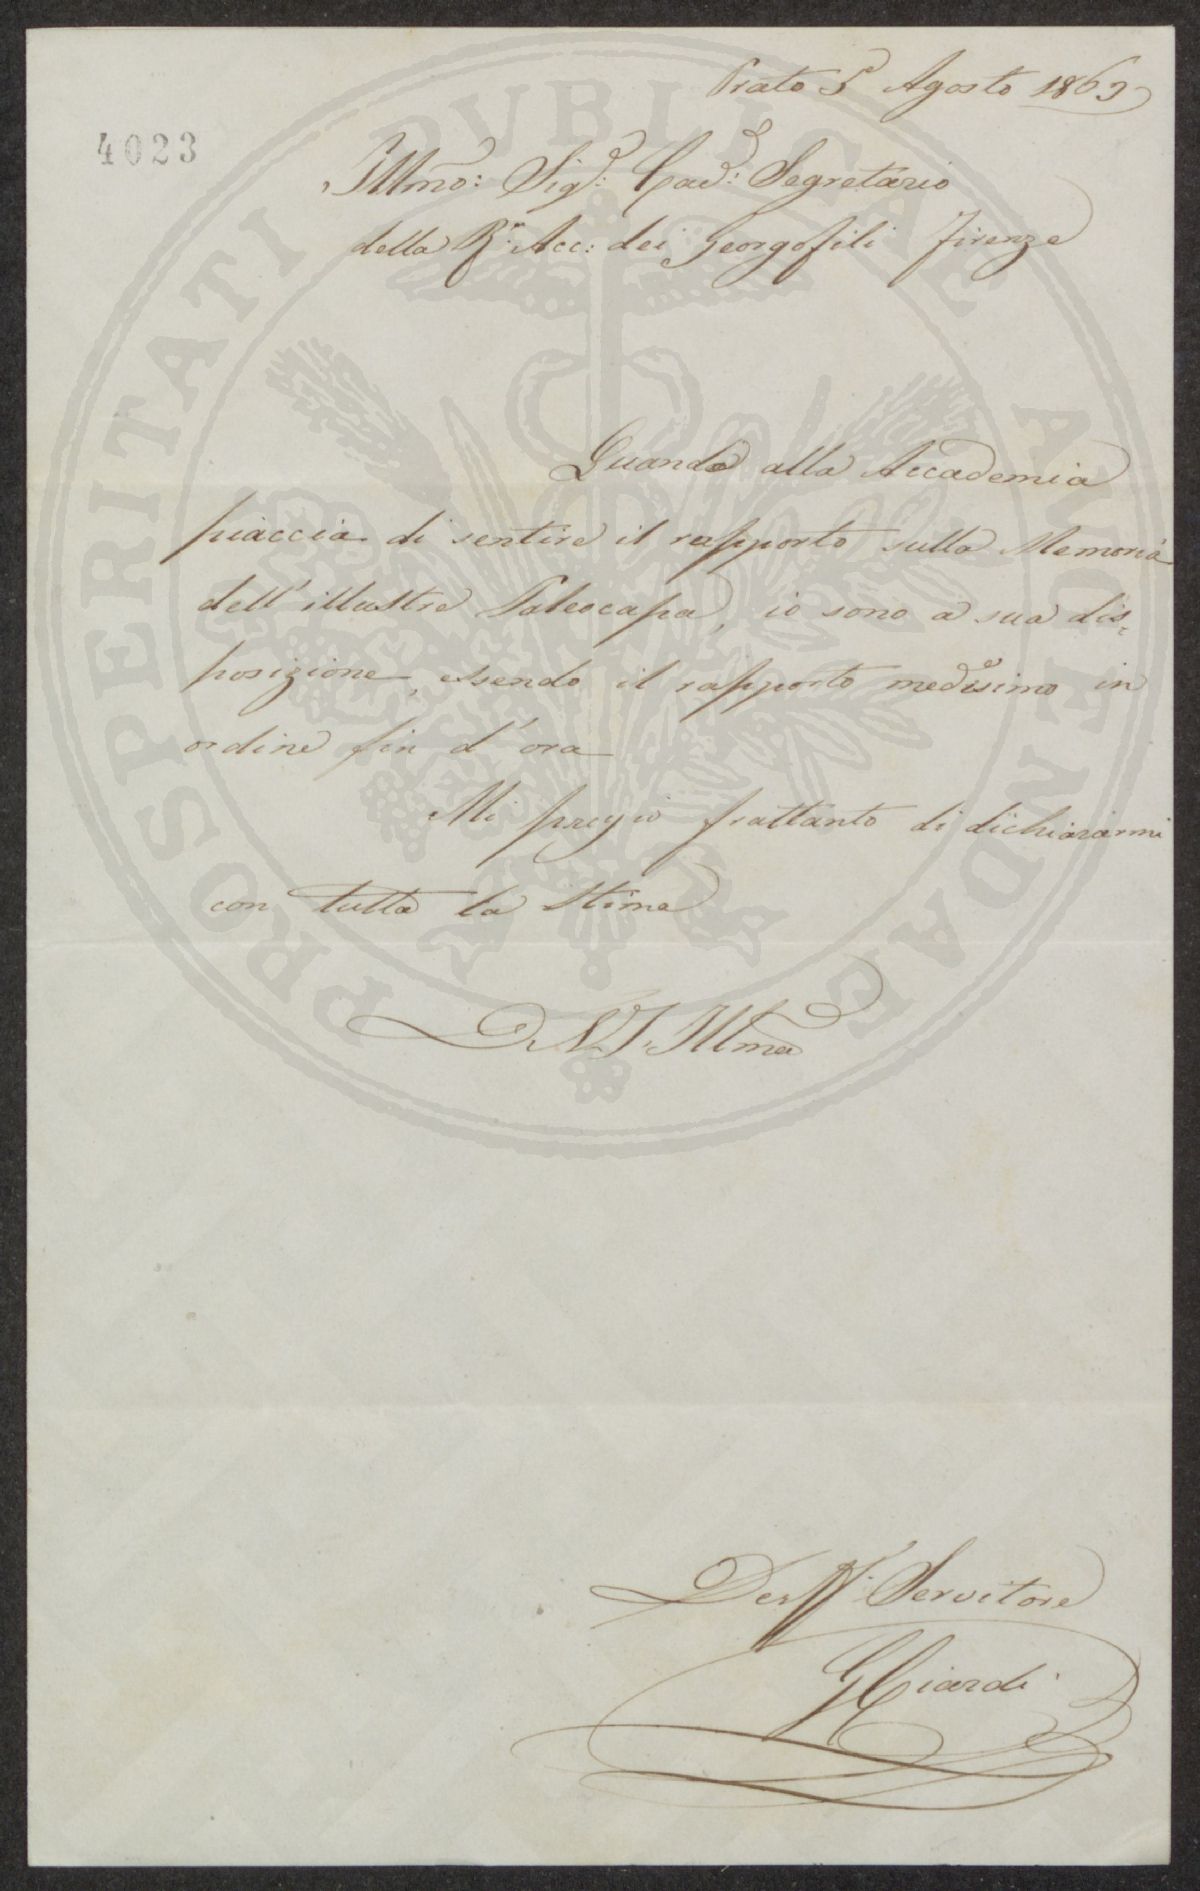 Prato 5 Agosto 1863
4023
Illmo: Sigr: Cavr: Segretario
della Ra: Acc: dei Georgofili Firenze
Quando alla Accademia
piaccia di sentire il rapporto sulla Memoria
dell'illustre Paleocapa, io sono a sua dis=
posizione, essendo il rapporto medesimo in
ordine fin d'ora
Mi pregio frattanto di dichiararmi
con tutta la stima
D. V. S. Illma
Servitore
G Ciardi
PROSPERITATI PVBLICAE AVGENDAE